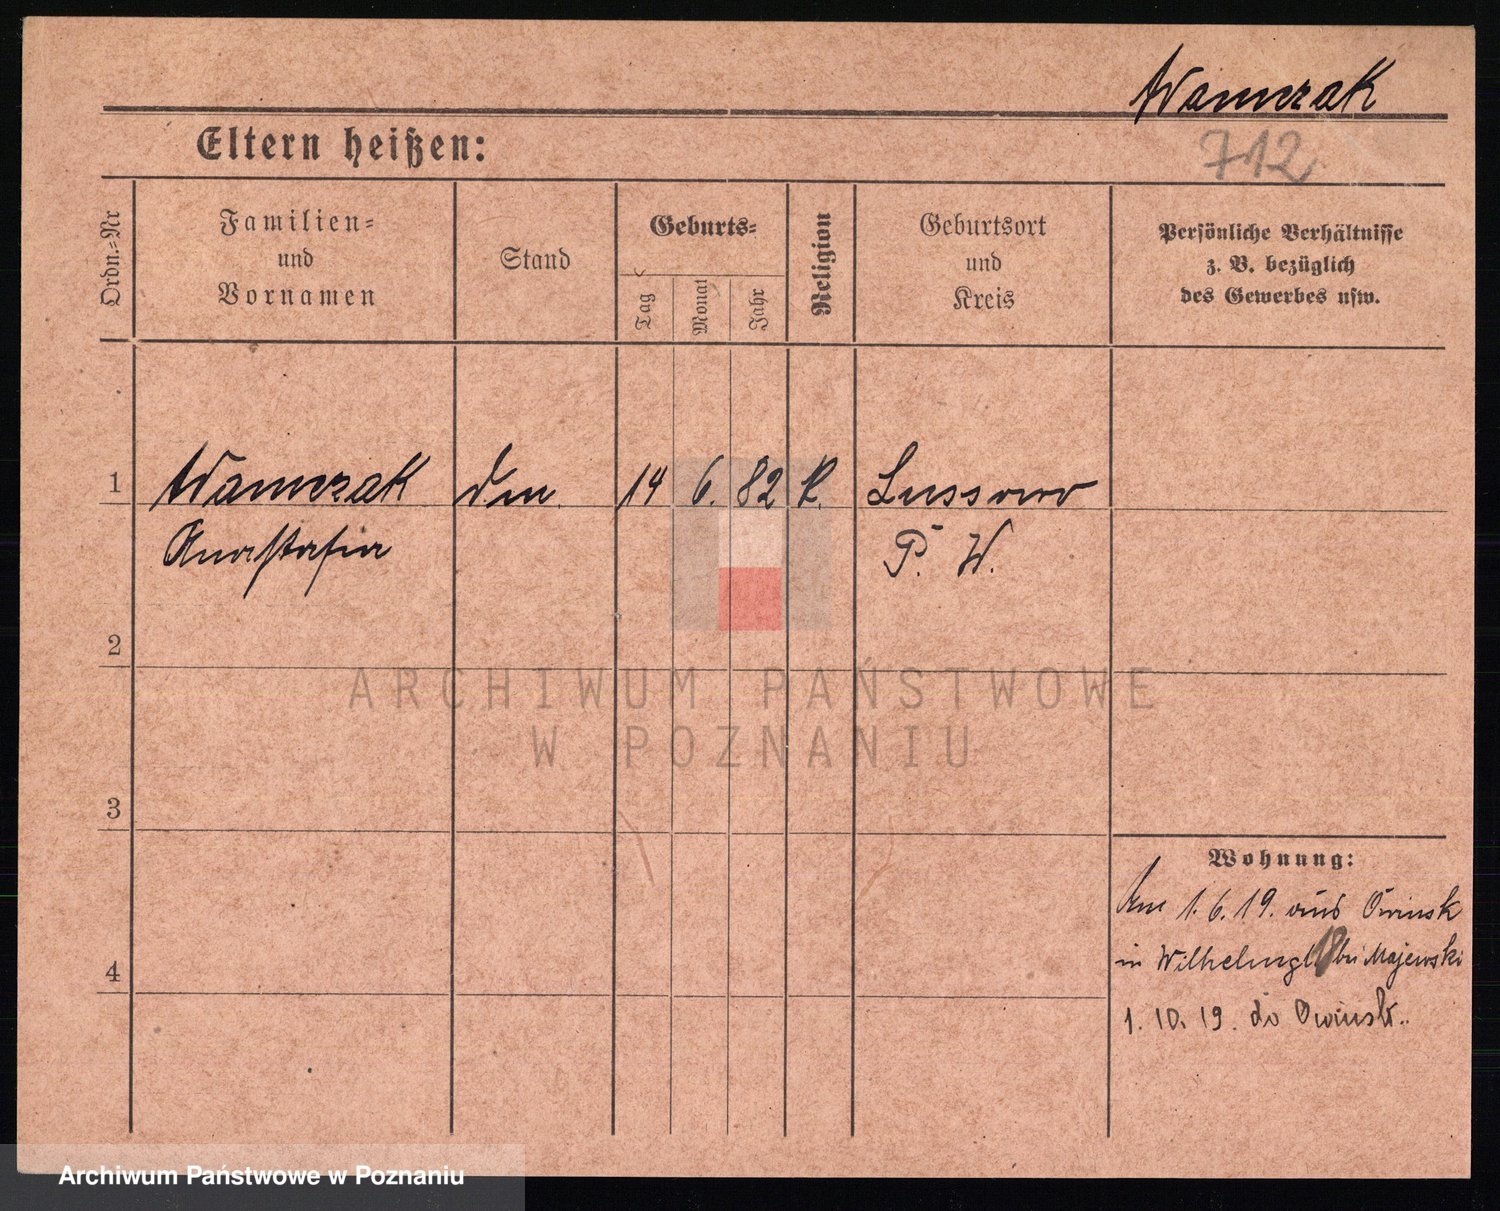 Wawrzak
712
Eltern heißen:
Ordn.=Nr
Familien=
und
Vornamen
Stand
Geburts=
Tag
Monat
Jahr
Religion
Geburtsort
und
Kreis
Persönliche Verhältnisse
z. B. bezüglich
des Gewerbes usw.
1
Wawrzak
14 6. 82 K.
Lussowo
Anastasia
P. W.
2
ARCHIWUM PAŃSTWOWE
W POZNANIU
3
Wohnung:
Am 1.6.19. aus Owinsk
in 18 bei Majewski
4
1. 10. 19. do Owinsk..
Archiwum Państwowe w Poznaniu